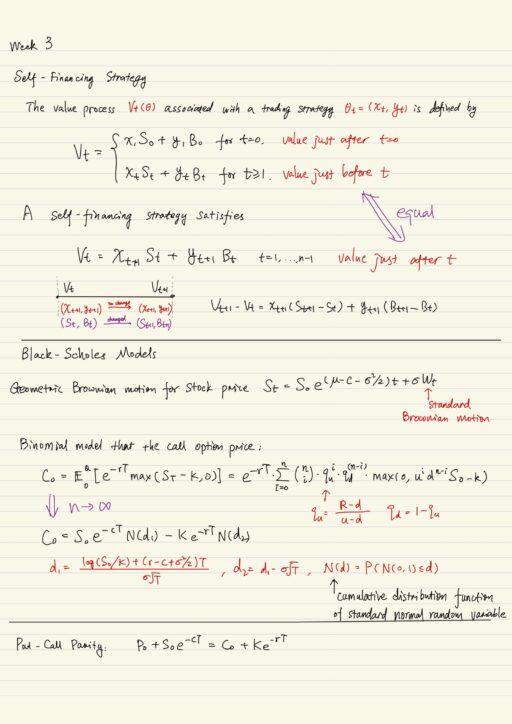 Week 3
Self-Financing Strategy
The value process Vt(θ) associated with a trading strategy θt = (xt, yt) is defined by
Vt = { x1S0 + y1B0 for t=0. value just after t=0
xtSt + ytBt for t≥1. value just before t
equal
A self-financing strategy satisfies
Vt = xt+1 St + yt+1 Bt t=1,...,n-1 value just after t
Vt Vt+1
(xt+1, yt+1) no change → (xt+1, yt+1)
(St, Bt) changed → (St+1, Bt+1)
Vt+1 - Vt = xt+1(St+1-St) + yt+1(Bt+1-Bt)
Black-Scholes Models
Geometric Brownian motion for stock price St = S0 e^(μ-c-σ²/2)t+σWt
↑ standard
Brownian motion
Binomial model that the call option price:
C0 = E0^Q [e^-rT max(ST-K,0)] = e^-rT · Σ_{i=0}^n (n i) · qu^i · qd^(n-i) · max(0, u^i d^n-i S0-k)
⇓ n→∞
qu = (R-d)/(u-d) qd = 1-qu
C0 = S0 e^-cT N(d1) - K e^-rT N(d2)
d1 = (log(S0/K)+(r-c+σ²/2)T)/(σ√T) , d2 = d1 - σ√T , N(d) = P(N(0,1)≤d)
↑ cumulative distribution function
of standard normal random variable
Put-Call Parity: P0 + S0e^-cT = C0 + Ke^-rT